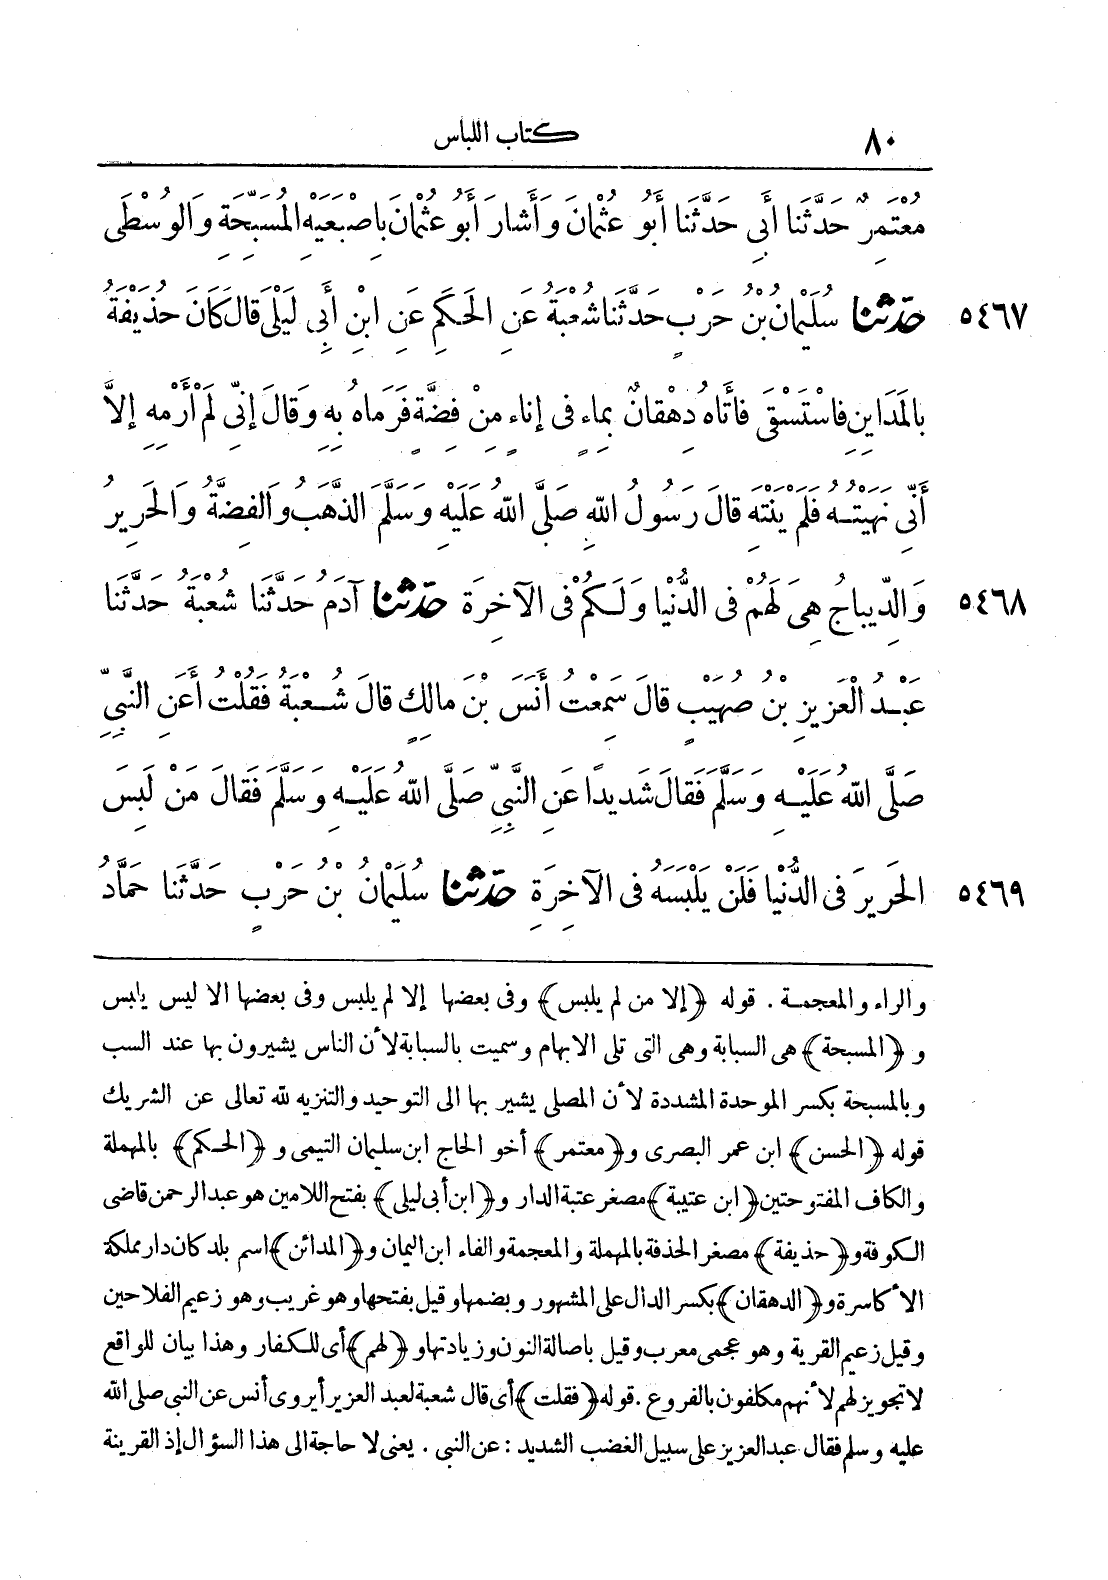 ٨٠
كتاب اللباس
مُعْتَمِرٌ حَدَّثَنَا أَبِي حَدَّثَنَا أَبُو عُثْمَانَ وَأَشَارَ أَبُو عُثْمَانَ بِإِصْبَعَيْهِ الْمُسَبِّحَةِ وَالْوُسْطَى
٥٤٦٧ حَدَّثَنَا سُلَيْمَانُ بْنُ حَرْبٍ حَدَّثَنَا شُعْبَةُ عَنِ الْحَكَمِ عَنِ ابْنِ أَبِي لَيْلَى قَالَ كَانَ حُذَيْفَةُ
بِالْمَدَايِنِ فَاسْتَسْقَى فَأَتَاهُ دِهْقَانٌ بِمَاءٍ فِى إِنَاءٍ مِنْ فِضَّةٍ فَرَمَاهُ بِهِ وَقَالَ إِنِّى لَمْ أَرْمِهِ إِلاَّ
أَنِّى نَهَيْتُهُ فَلَمْ يَنْتَهِ قَالَ رَسُولُ اللهِ صَلَّى اللهُ عَلَيْهِ وَسَلَّمَ الذَّهَبُ وَالْفِضَّةُ وَالْحَرِيرُ
٥٤٦٨ وَالدِّيبَاجُ هِىَ لَهُمْ فِى الدُّنْيَا وَلَكُمْ فِى الآخِرَةِ حَدَّثَنَا آدَمُ حَدَّثَنَا شُعْبَةُ حَدَّثَنَا
عَبْدُ الْعَزِيزِ بْنُ صُهَيْبٍ قَالَ سَمِعْتُ أَنَسَ بْنَ مَالِكٍ قَالَ شُعْبَةُ فَقُلْتُ أَعَنِ النَّبِيِّ
صَلَّى اللهُ عَلَيْهِ وَسَلَّمَ فَقَالَ شَدِيدًا عَنِ النَّبِيِّ صَلَّى اللهُ عَلَيْهِ وَسَلَّمَ فَقَالَ مَنْ لَبِسَ
٥٤٦٩ الْحَرِيرَ فِى الدُّنْيَا فَلَنْ يَلْبَسَهُ فِى الآخِرَةِ حَدَّثَنَا سُلَيْمَانُ بْنُ حَرْبٍ حَدَّثَنَا حَمَّادُ
والراء والمعجمة . قوله ﴿إلا من لم يلبس﴾ وفى بعضها إلا لم يلبس وفى بعضها الا ليس يلبس
و ﴿المسبحة﴾ هى السبابة وهى التى تلى الابهام وسميت بالسبابة لأن الناس يشيرون بها عند السب
وبالمسبحة بكسر الموحدة المشددة لأن المصلى يشير بها الى التوحيد والتنزيه لله تعالى عن الشريك
قوله ﴿الحسن﴾ ابن عمر البصرى و﴿معتمر﴾ أخو الحاج ابن سليمان التيمى و ﴿الحكم﴾ بالمهملة
والكاف المفتوحتين ﴿ابن عتيبة﴾ مصغر عتبة الدار و﴿ابن أبى ليلى﴾ بفتح اللامين هو عبد الرحمن قاضى
الكوفة و﴿حذيفة﴾ مصغر الحذفة بالمهملة والمعجمة والفاء ابن اليمان و﴿المدائن﴾ اسم بلد كان دار مملكة
الأكاسرة و﴿الدهقان﴾ بكسر الدال على المشهور وبضمها وقيل بفتحها وهو غريب وهو زعيم الفلاحين
وقيل زعيم القرية وهو عجمى معرب وقيل باصالة النون وزيادتها و﴿لهم﴾ أى للكفار وهذا بيان للواقع
لا تجويز لهم لأنهم مكلفون بالفروع . قوله ﴿فقلت﴾ أى قال شعبة لعبد العزيز أيروى أنس عن النبى صلى الله
عليه وسلم فقال عبد العزيز على سبيل الغضب الشديد : عن النبى . يعنى لا حاجة الى هذا السؤال إذ القرينة